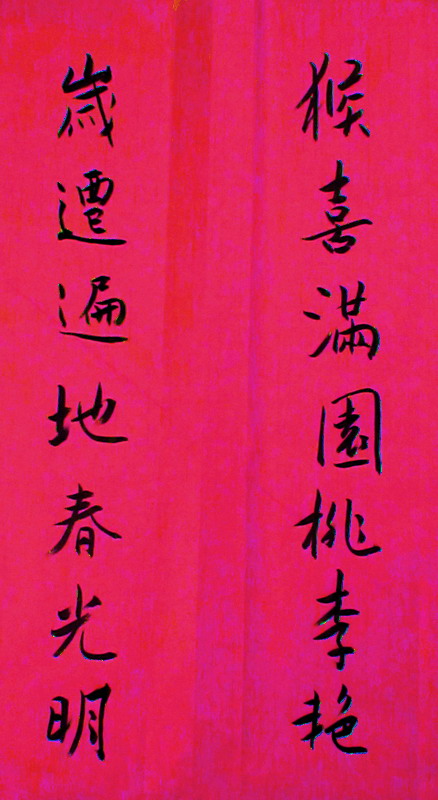 猴喜滿園桃李艳
歲遷遍地春光明